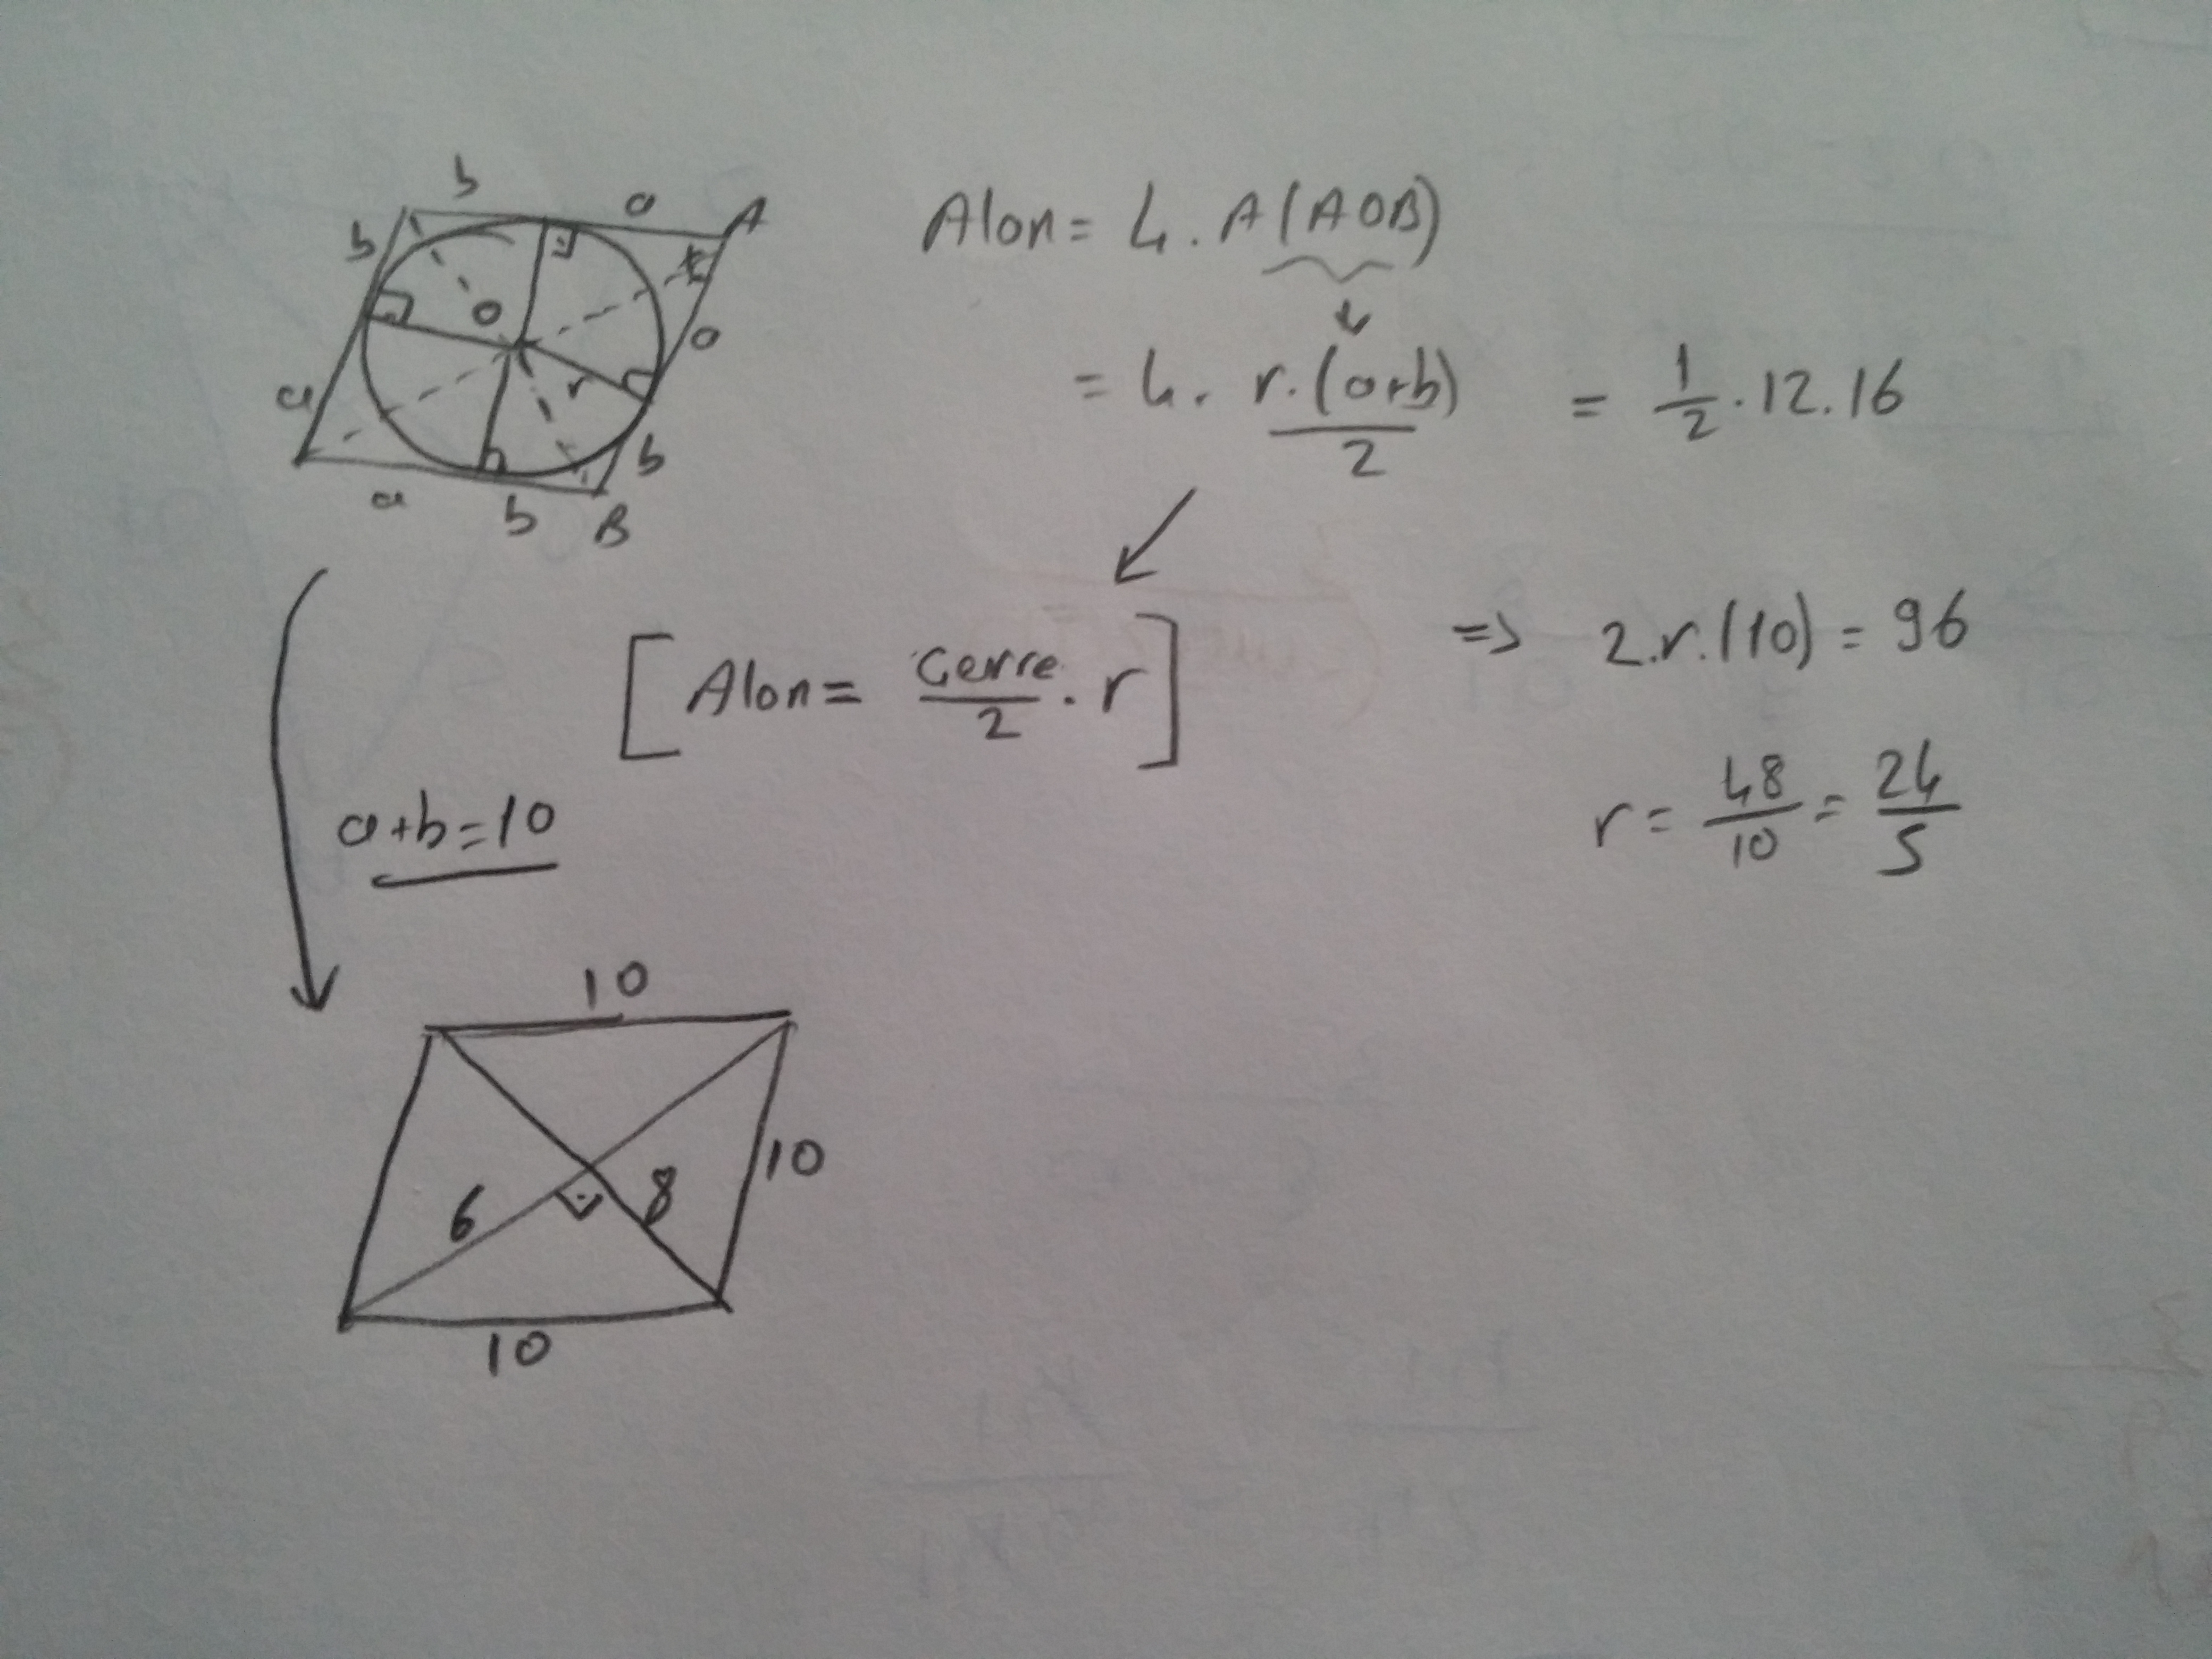 b a A
b
t
O
a
r
a
b
a b B
Alan = 4 . A(AOB)
= 4 . r.(a+b)/2 = 1/2 . 12 . 16
[Alan = Çevre/2 . r]
=> 2.r.(10) = 96
r = 48/10 = 24/5
a+b=10
10
10
6 8
10